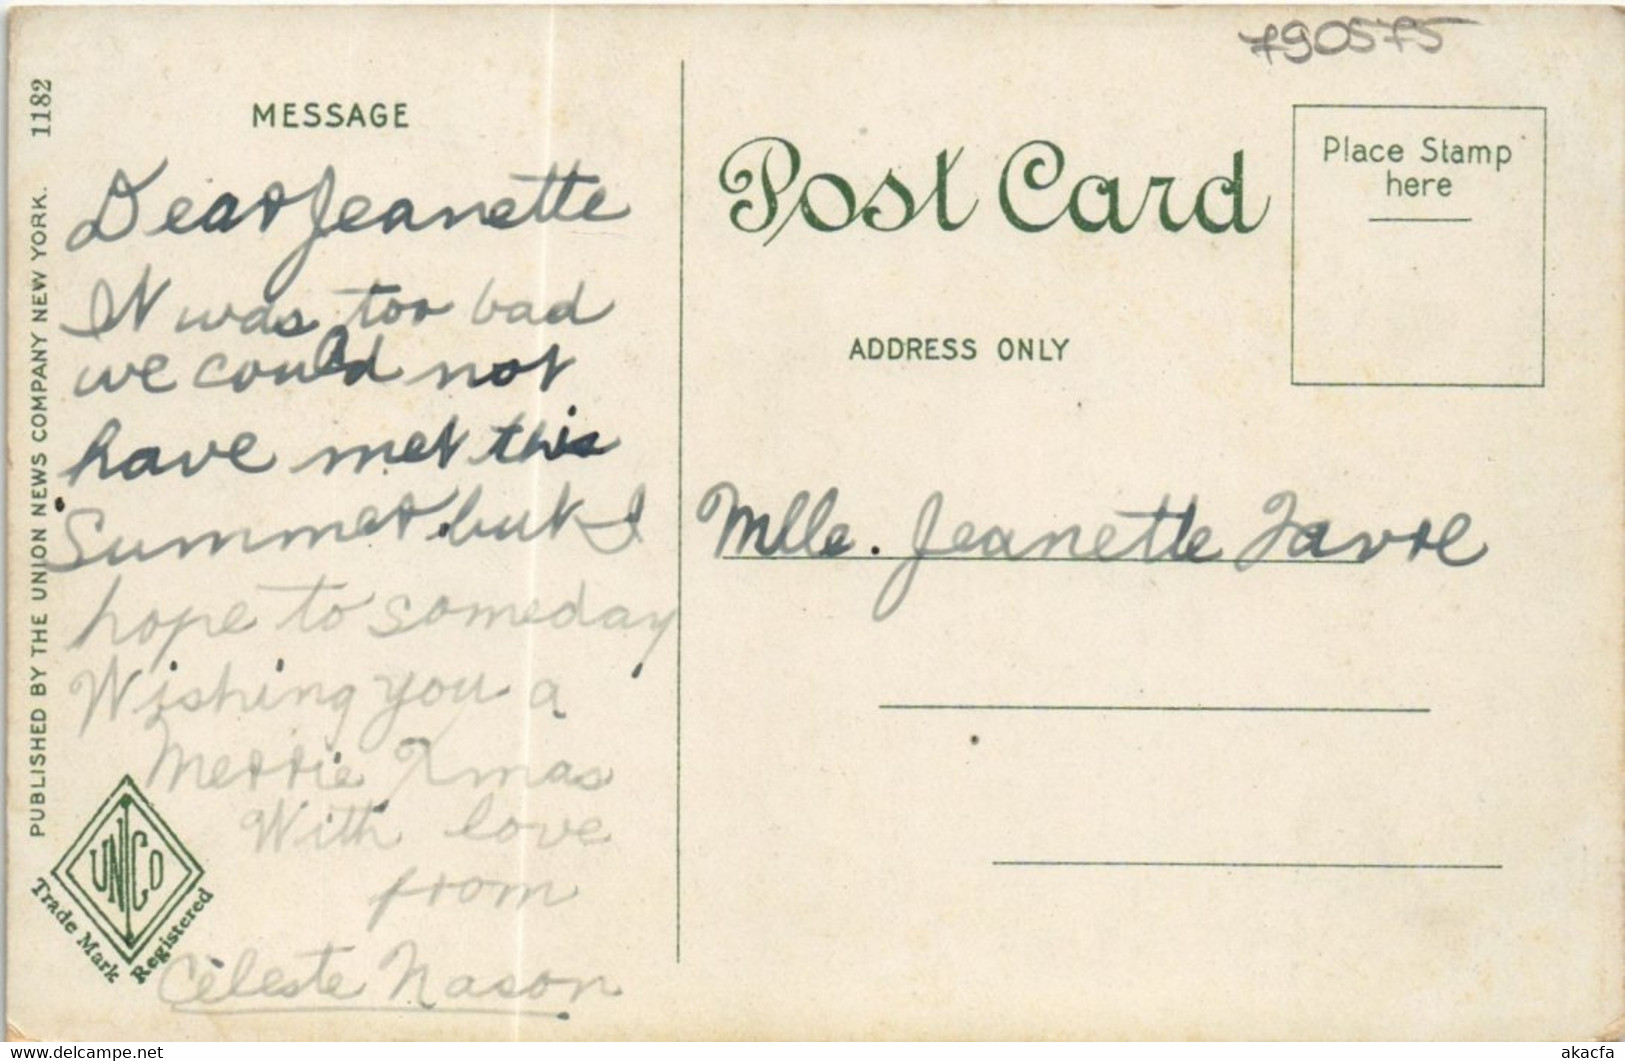 790575
MESSAGE
Dear Jeanette
It was too bad
we could not
have met this
Summer. but I
hope to someday
Wishing you a
Merrie Xmas
With love
from
Céleste Nason
PUBLISHED BY THE UNION NEWS COMPANY NEW YORK. 1182
UNCO
Trade Mark Registered
Post Card
Place Stamp
here
ADDRESS ONLY
Mlle. Jeanette Favre
www.delcampe.net
akacfa